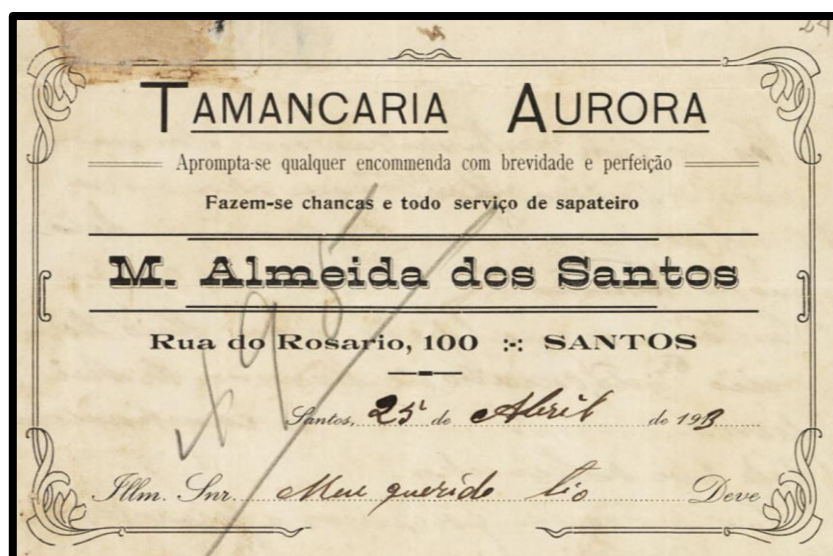 TAMANCARIA AURORA
Aprompta-se qualquer encommenda com brevidade e perfeição
Fazem-se chancas e todo serviço de sapateiro
M. Almeida dos Santos
Rua do Rosario, 100 :-: SANTOS
Santos, 25 de Abril de 1913
Illm. Snr. Meu querido tio Deve